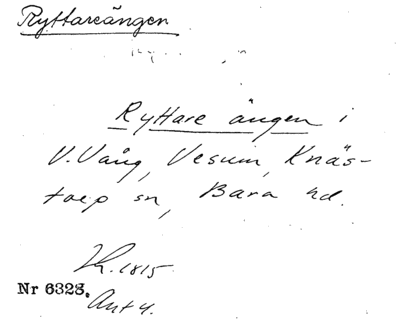 Ryttareängen
Ryttare ängen i
V. Vång, Vesum, Knäs-
torp sn, Bara hd.
1815.
Nr 6328.
Ant 4.